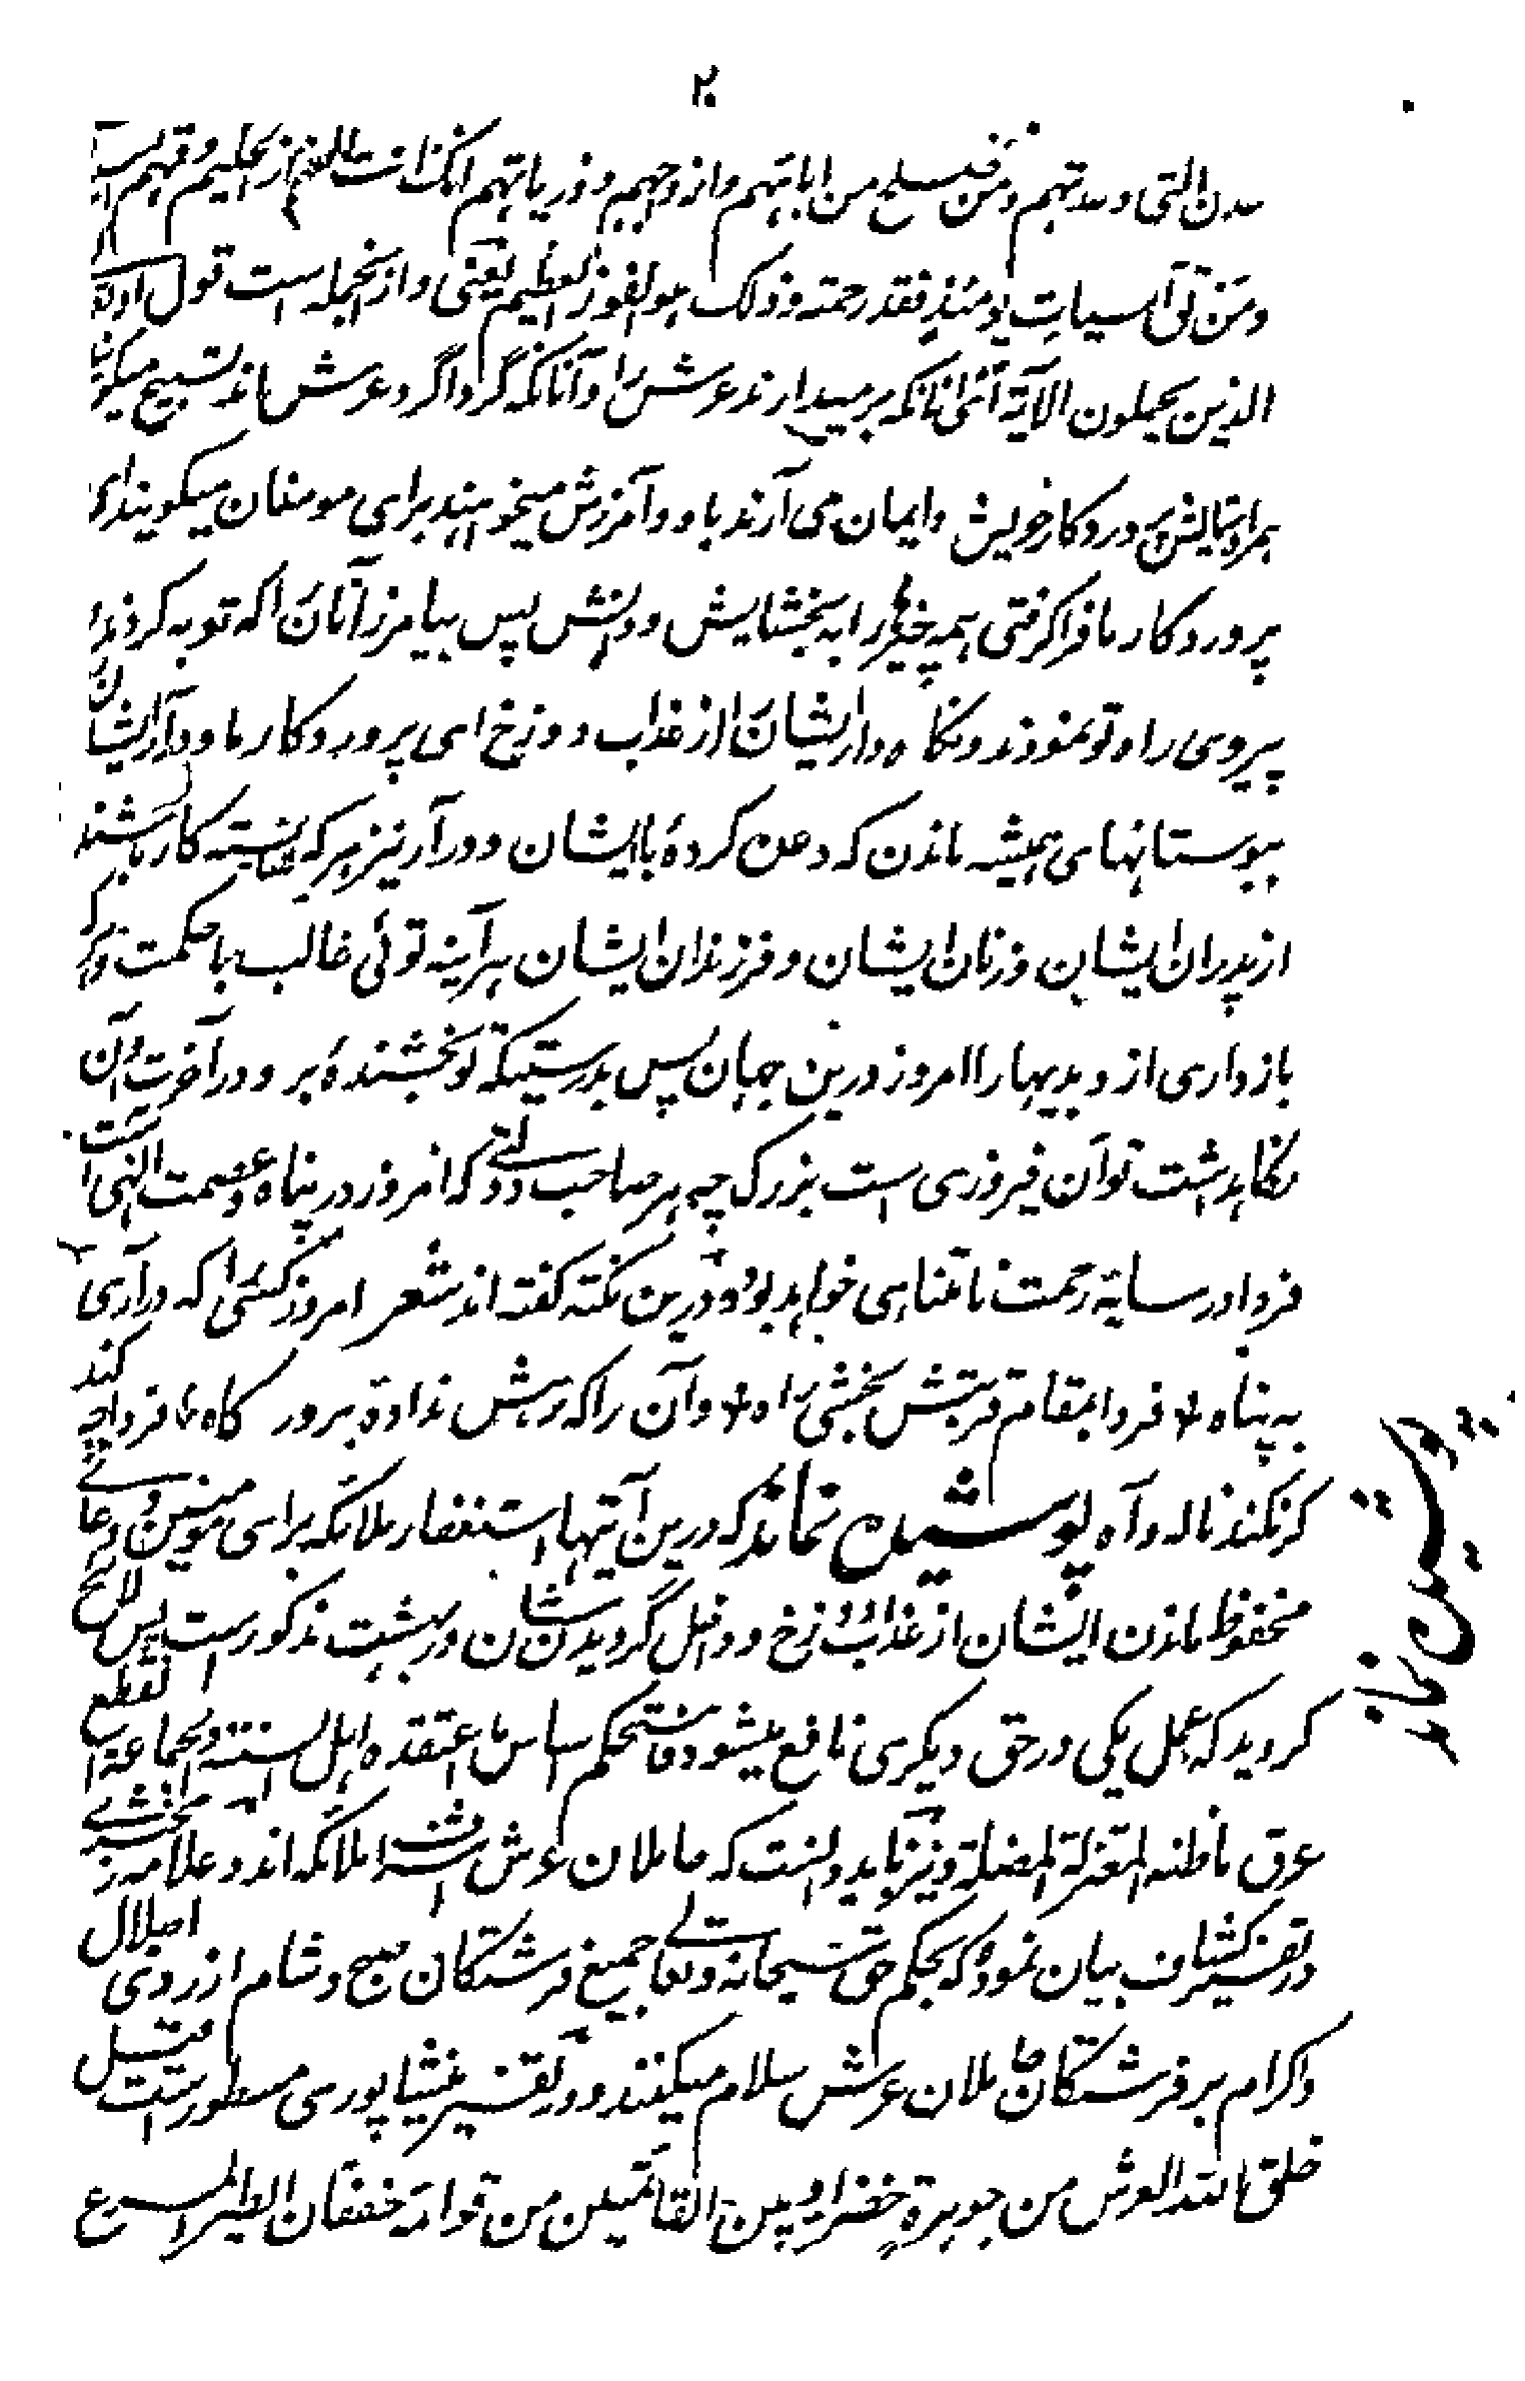 ۲۰
عدن التی وعدتهم ومن صلح من ابائهم وازواجهم وذریاتهم انک انت العزیز الحکیم وقهم السیا
ومن تق السیات یومئذ فقد رحمته وذلک هو الفوز العظیم یعنی وازانجمله است قول او
الذین یحملون الآیة آنانکه برمیدارند عرش را وآنانکه گرداگرد عرش اند تسبیح میگویند
همراه ستایش پروردگار خویش وایمان می آرند باو وآمرزش میخواهند برای مومنان میگویند ای
پروردگار ما فراگرفتی همه چیز را به بخشایش ودانش پس بیامرز آنان را که توبه کردند و
پیروی راه تو نمودند ونگاه دار ایشان را از عذاب دوزخ ای پروردگار ما ودرآر ایشان را
ببوستانهای همیشه ماندن که وعده کردهٔ با ایشان ودرآر نیز هرکه شایسته کار باشند
از پدران ایشان وزنان ایشان وفرزندان ایشان هرآینه توئی غالب باحکمت وهرکرا
بازداری از وی بدیها را امروز درین جهان پس بدرستیکه تو بخشندهٔ بر و در آخرت وآن
نگاهداشت تو آن فیروزی است بزرگ چه هر صاحب دولتی که امروز در پناه وعصمت الهی است
فردا در سایهٔ رحمت نامتناهی خواهد بود ودرین نکته گفته اند شعر امروز کسی را که درآری
به پناه ٭ فردا بمقام قربتش بخشی راه ٭ وآن را که رهش نداده بر درگاه ٭ فردا چه کند
گر نکند ناله وآه پوشیده نماند که درین آیتها استغفار ملائکه برای مومنین ودعای
محفوظ ماندن ایشان از عذاب دوزخ وداخل گردیدن شان در بهشت مذکور است پس لائح
گردید که عمل یکی در حق دیگری نافع میشود فاستحکم اساس ما اعتقده اهل السنة والجماعة وانقطع
عرق ما ظنه المعتزلة المضلة ونیز باید دانست که حاملان عرش اشرف ملائکه اند وعلامه زمخشری
در تفسیر کشاف بیان نموده که بحکم حق سبحانه وتعالی جمیع فرشتگان صبح وشام از روی اجلال
واکرام بر فرشتگان حاملان عرش سلام میکنند ودر تفسیر نیشاپوری مسطور است قیل
خلق الله العرش من جوهرة خضراء وبین القائمتین من قوائمه خفقان الطیر المسرع
پوشیده نماند